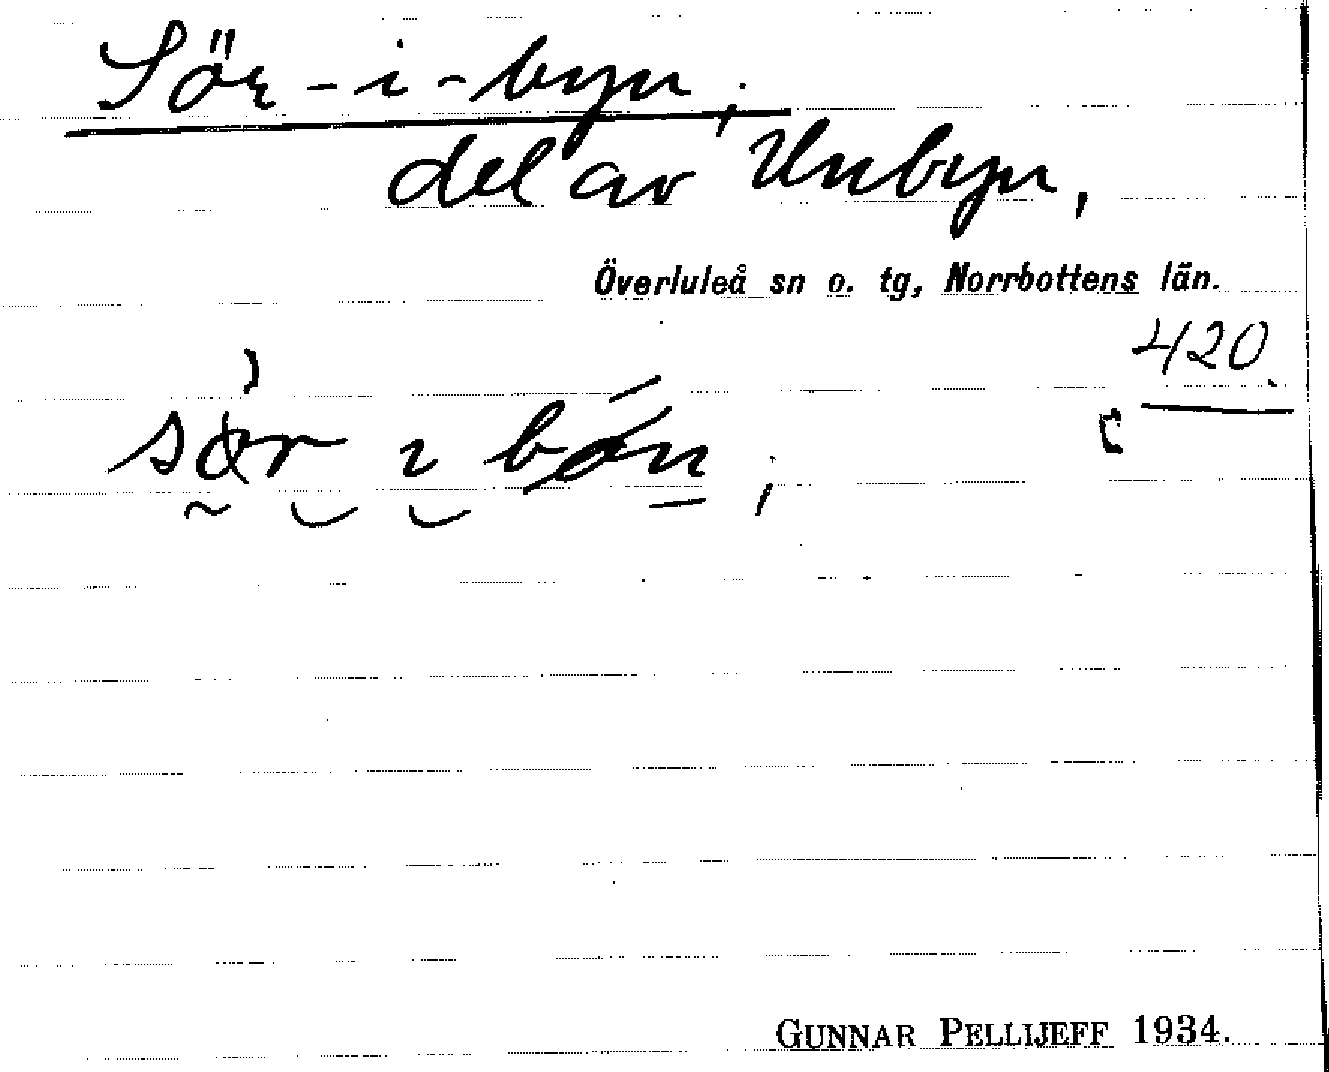 Sör-i-byn;
del av Unbyn,
Överluleå sn o. tg, Norrbottens län.
420.
GUNNAR PELLIJEFF 1934.